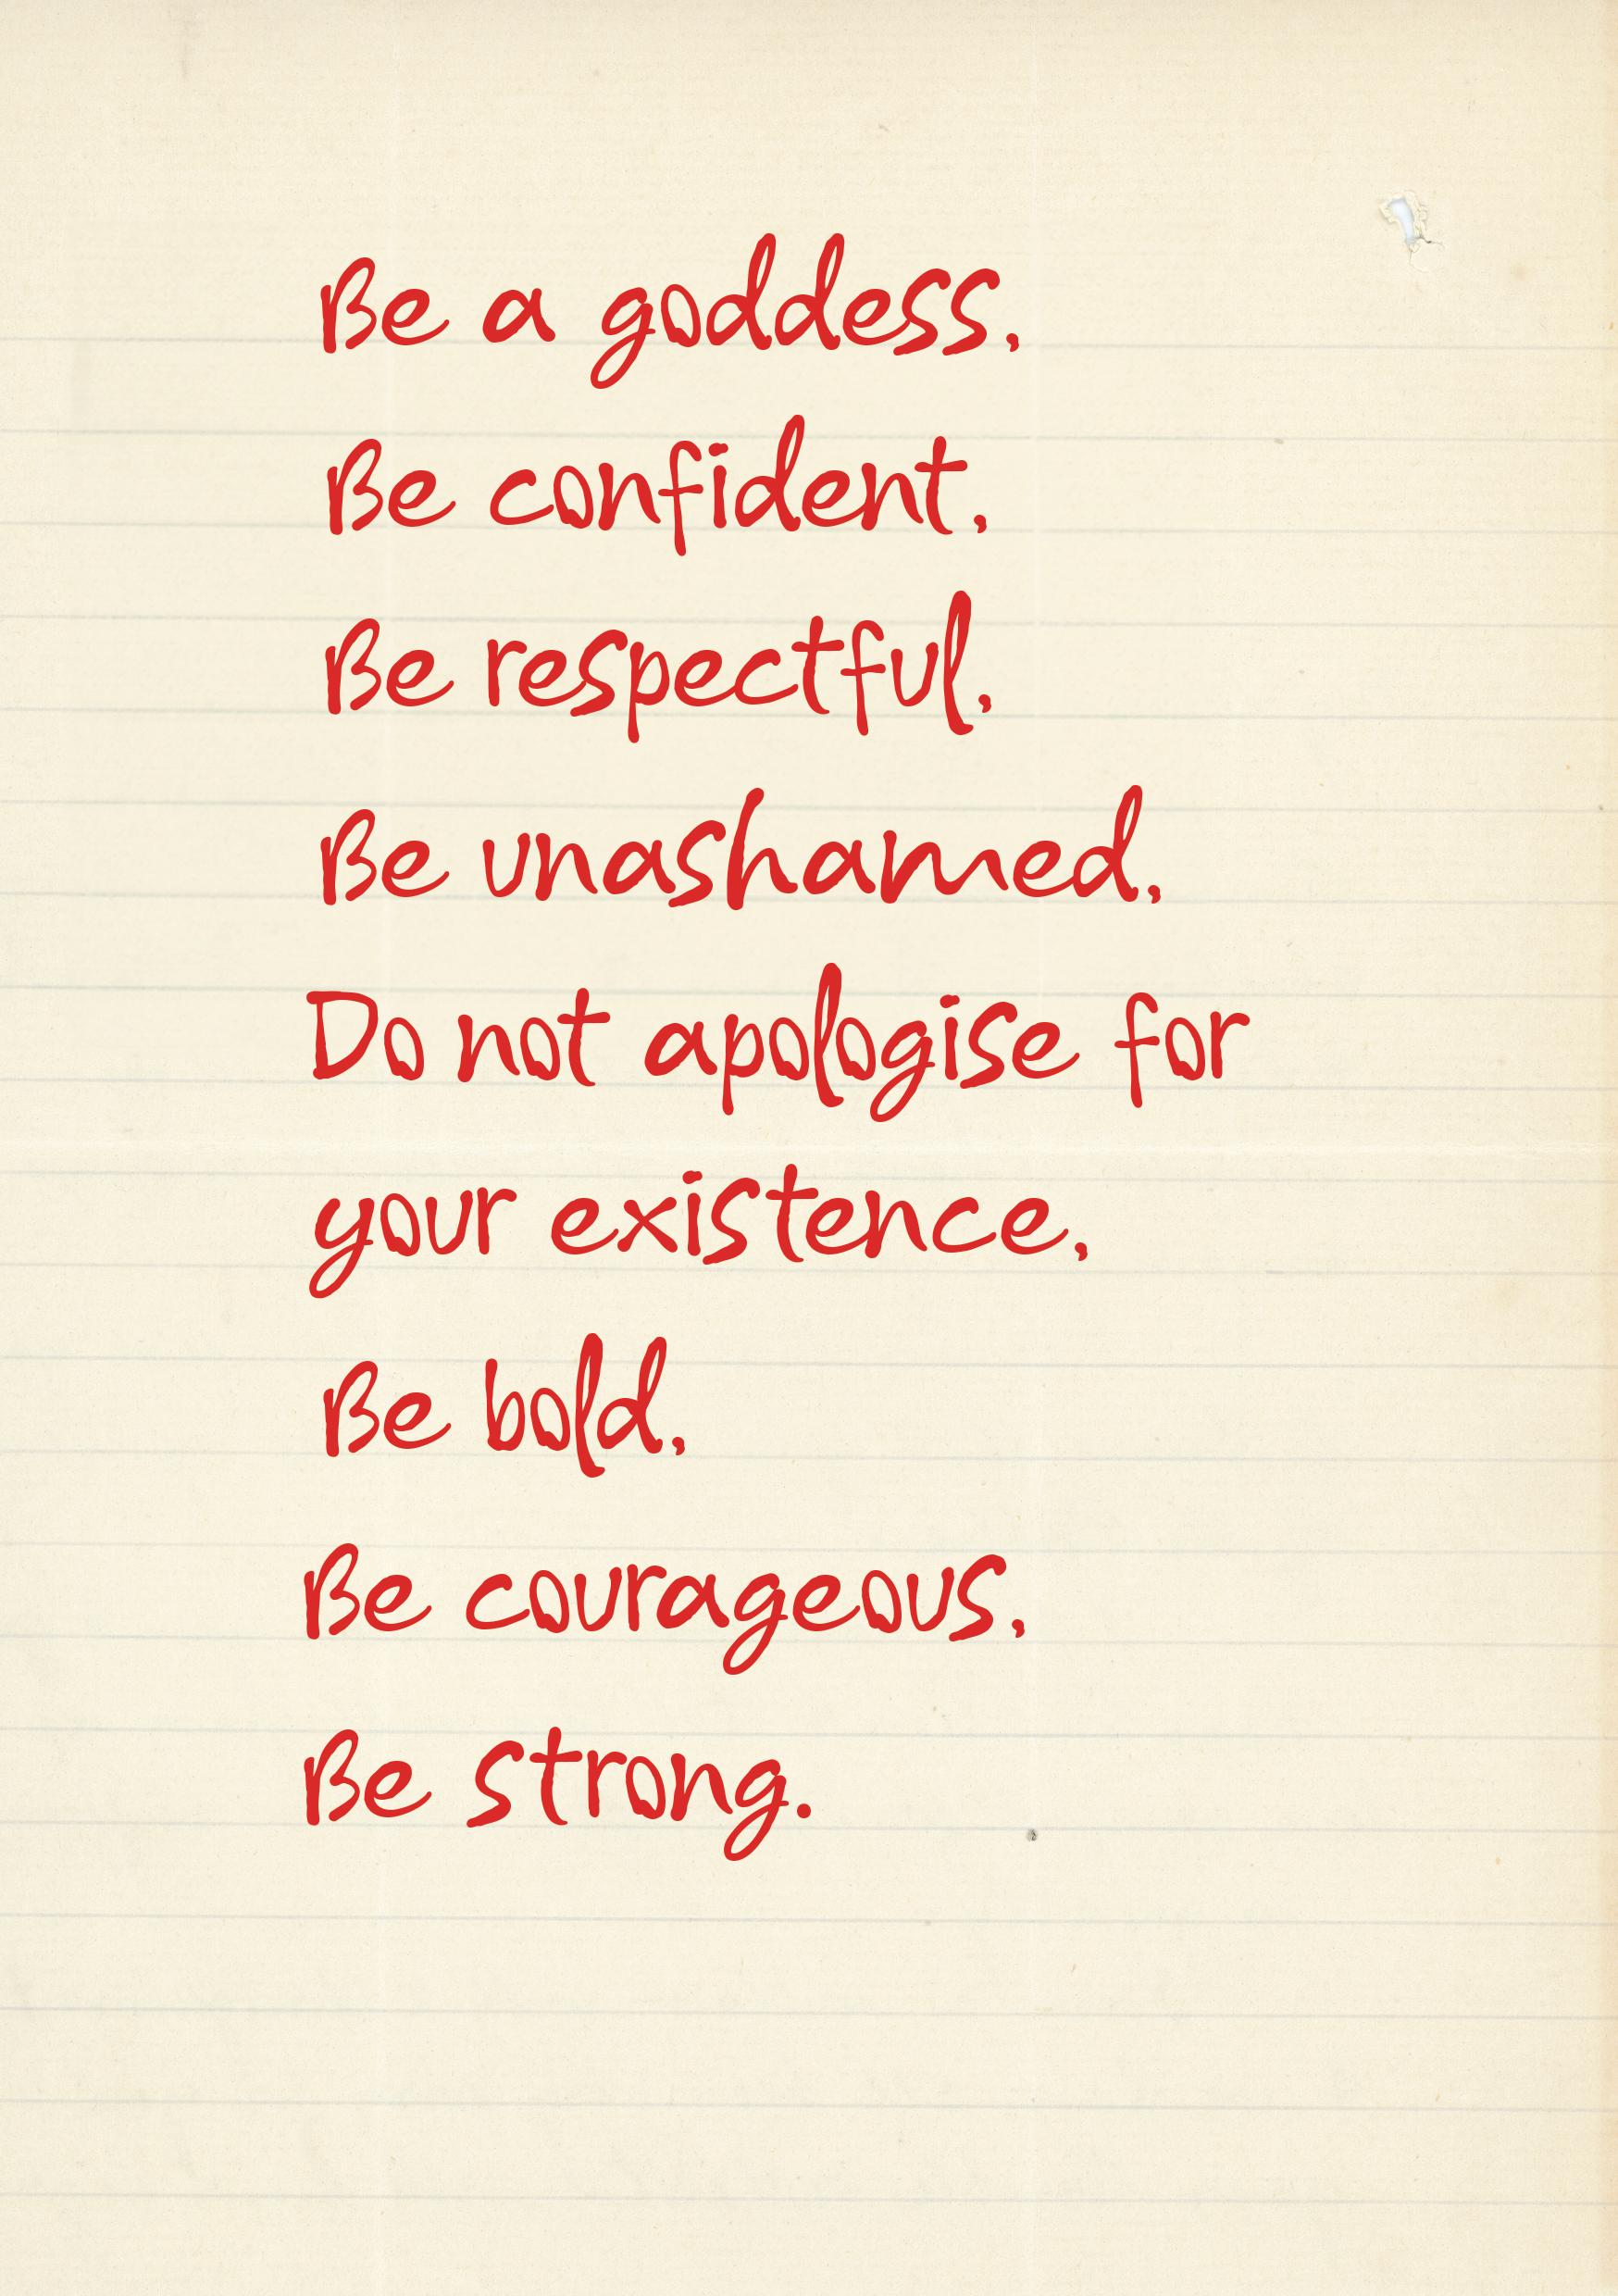 Be a goddess,
Be confident,
Be respectful,
Be unashamed,
Do not apologise for
your existence,
Be bold,
Be courageous,
Be strong.